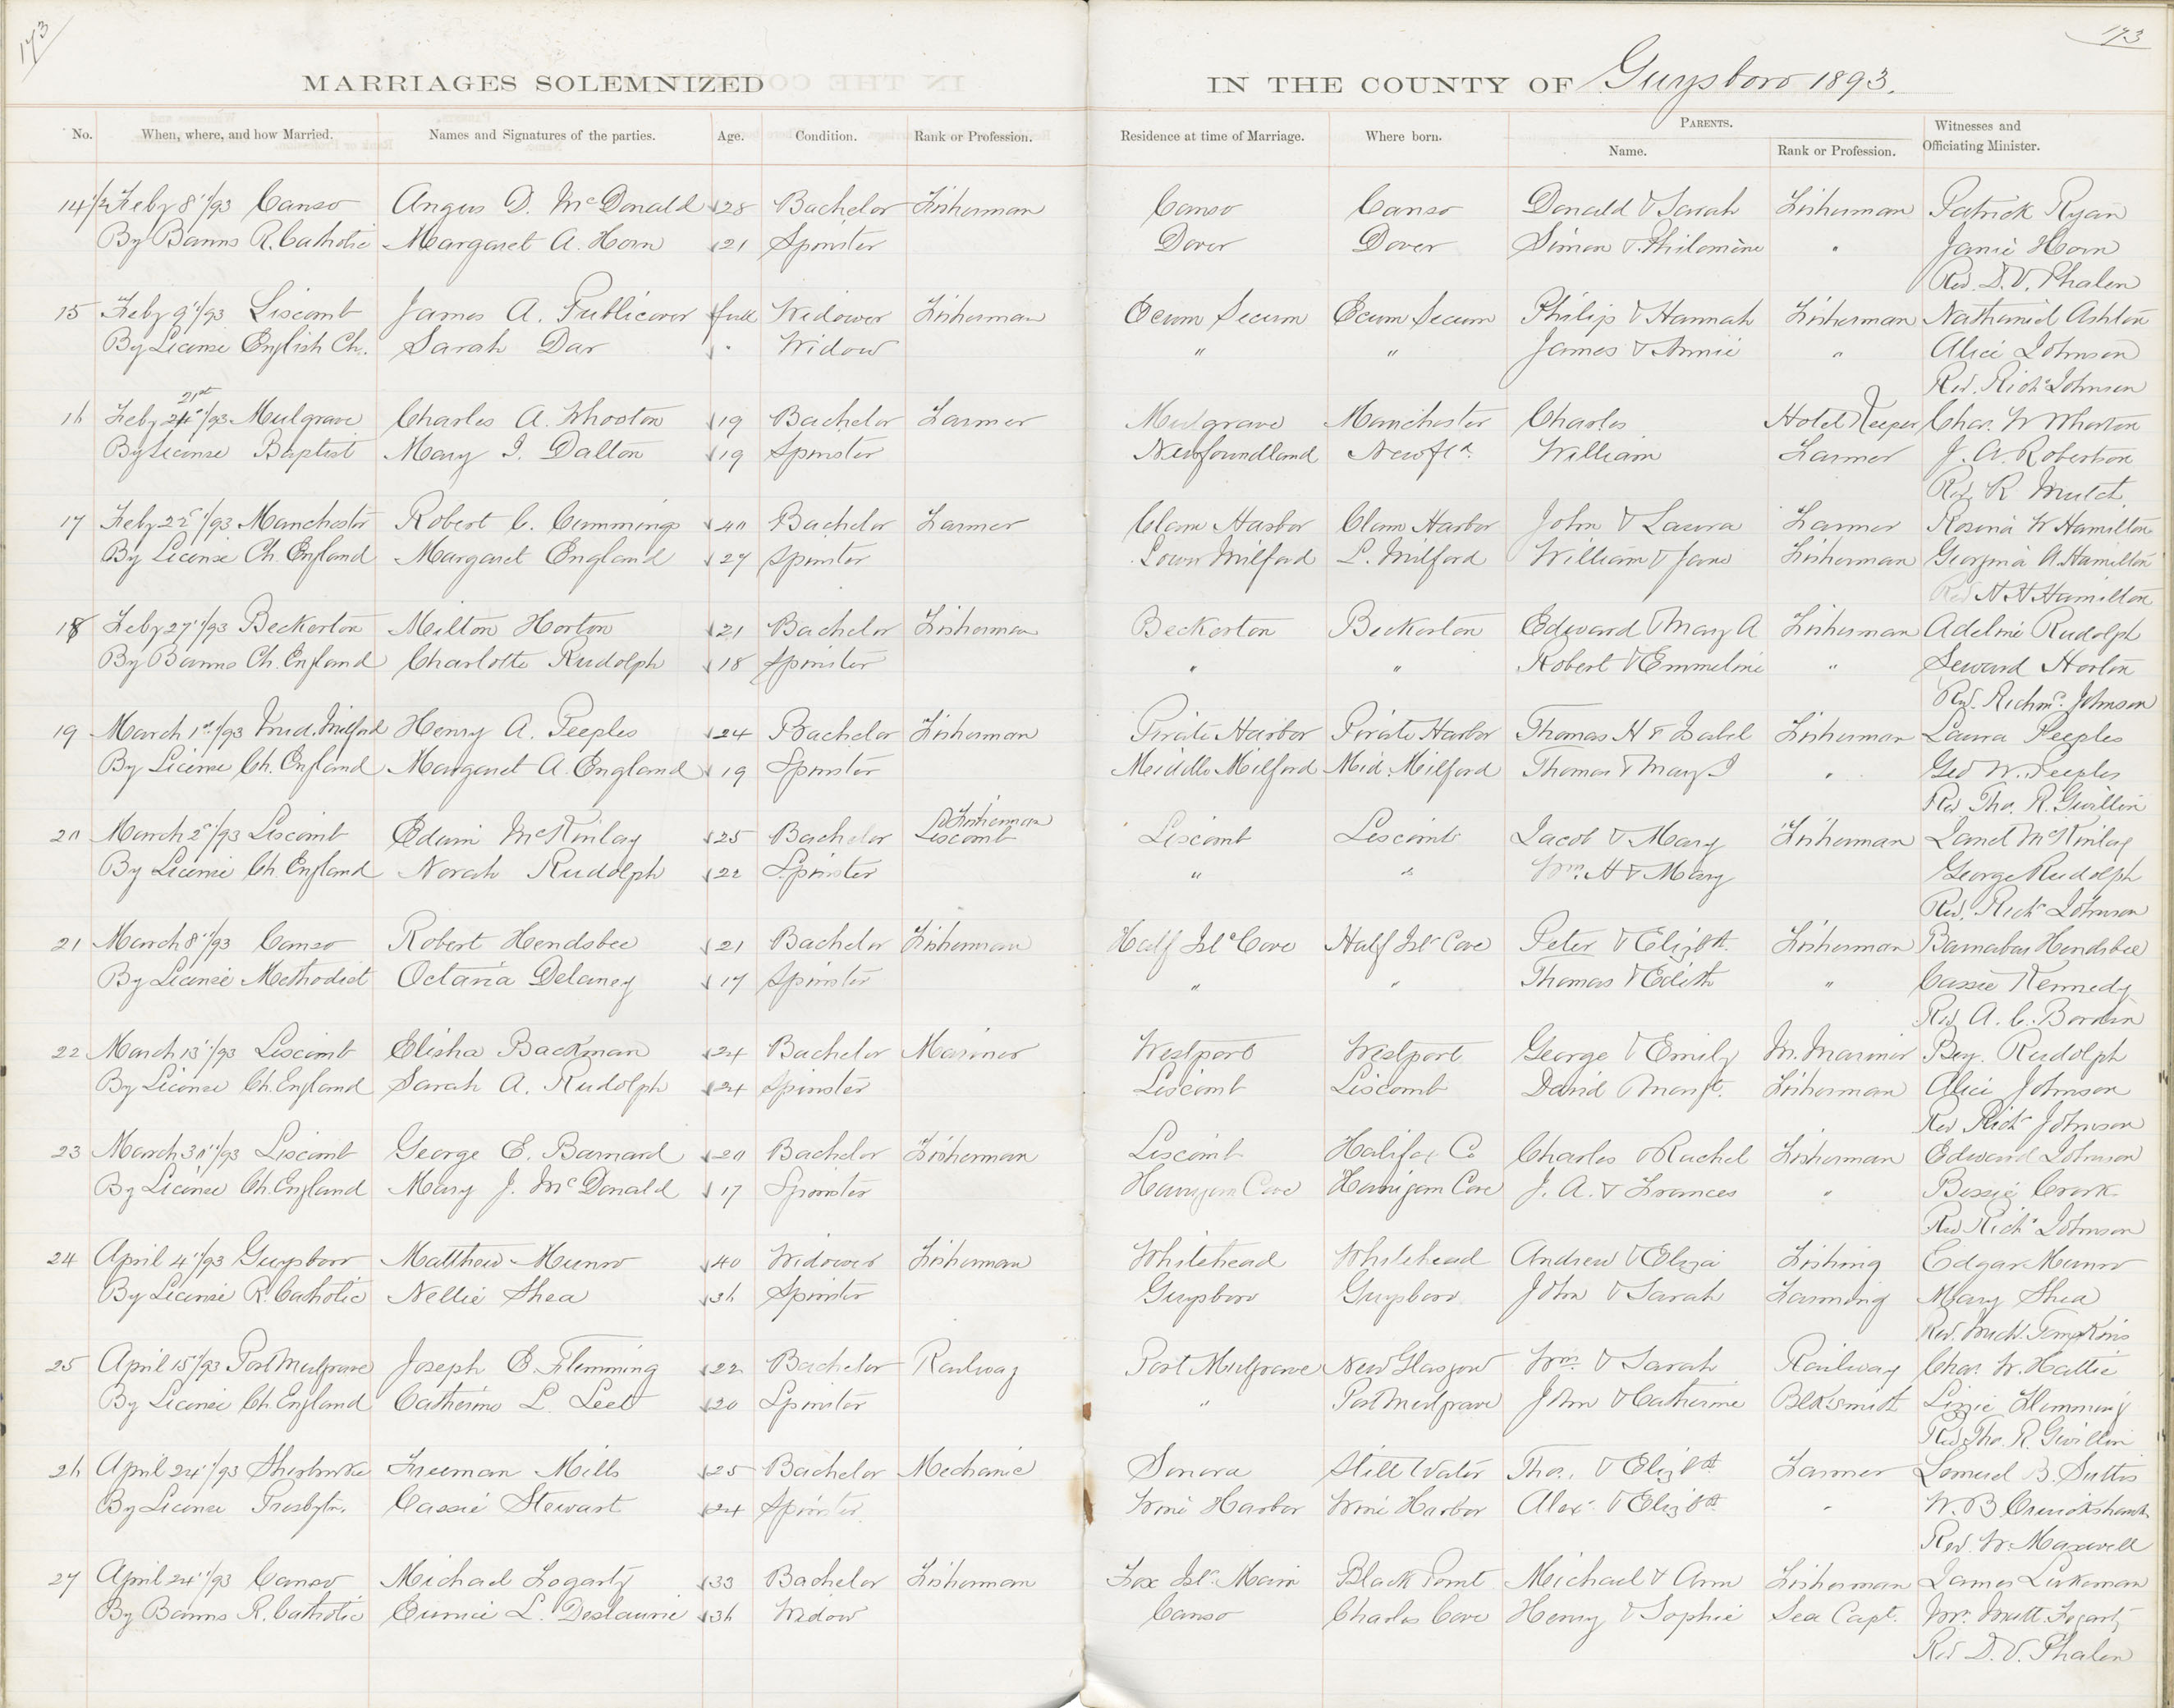 173
173
MARRIAGES SOLEMNIZED IN THE COUNTY OF Guysboro 1893.
No. When, where, and how Married. Names and Signatures of the parties. Age. Condition. Rank or Profession. Residence at time of Marriage. Where born. PARENTS. Name. Rank or Profession. Witnesses and Officiating Minister.
14½ Feby 8"/93 Canso Angus D. McDonald 28 Bachelor Fisherman Canso Canso Donald & Sarah Fisherman Patrick Ryan
By Banns R. Catholic Margaret A. Horn 21 Spinster Dover Dover Simon & Philomène " Janie Horn
Rev. D. V. Phalen
15 Feby 9"/93 Liscomb James A. Publicover full Widower Fisherman Ecum Secum Ecum Secum Philip & Hannah Fisherman Nathaniel Ashton
By License English Ch. Sarah Dar " Widow " " James & Annie " Alice Johnson
Rev. Richd Johnson
16 Feby 21st/93 Mulgrave Charles A. Whooton 19 Bachelor Farmer Mulgrave Manchester Charles Hotel Keeper Chas. W Whorton
By License Baptist Mary I. Dalton 19 Spinster Newfoundland Newfld William Farmer J. A. Robertson
Rev R Mutch
17 Feby 22d/93 Manchester Robert C. Cummings 40 Bachelor Farmer Clam Harbor Clam Harbor John & Laura Farmer Rosina W Hamilton
By License Ch. England Margaret England 27 Spinster Lower Milford L. Milford William & Jane Fisherman Georgina A. Hamilton
Rev H H Hamilton
18 Feby 27"/93 Beckerton Milton Horton 21 Bachelor Fisherman Beckerton Beckerton Edward & Mary A Fisherman Adeline Rudolph
By Banns Ch. England Charlotte Rudolph 18 Spinster " " Robert & Emmeline " Seward Horton
Rev. Richmd Johnson
19 March 1st/93 Mid. Milford Henry A. Peeples 24 Bachelor Fisherman Pirate Harbor Pirate Harbor Thomas H & Isabel Fisherman Laura Peeples
By License Ch. England Margaret A. England 19 Spinster Middle Milford Mid. Milford Thomas & Mary J " Geo W. Peeples
Rev Tho. R. Gwillim
20 March 2d/93 Liscomb Edwin McKinlay 25 Bachelor Fisherman Liscomb Liscomb Liscomb Jacob & Mary Fisherman Janet McKinlay
By License Ch. England Norah Rudolph 22 Spinster " " Wm. H & Mary George Rudolph
Rev. Richd Johnson
21 March 8"/93 Canso Robert Hendsbee 21 Bachelor Fisherman Half Isle Cove Half Isle Cove Peter & Elizbth Fisherman Barnabas Hendsbee
By License Methodist Octavia Delaney 17 Spinster " " Thomas & Edith " Cassie Kennedy
Rev A. C. Borden
22 March 13"/93 Liscomb Elisha Backman 24 Bachelor Mariner Westport Westport George & Emily M. Mariner Benj. Rudolph
By License Ch. England Sarah A. Rudolph 24 Spinster Liscomb Liscomb David & Margt. Fisherman Alice Johnson
Rev Richd Johnson
23 March 30"/93 Liscomb George E. Barnard 20 Bachelor Fisherman Liscomb Halifax Co Charles & Rachel Fisherman Edward Johnson
By License Ch. England Mary J. McDonald 17 Spinster Cove Cove J. A. & Frances " Bessie Crook
Rev Richd Johnson
24 April 4"/93 Guysboro Matthew Munro 40 Widower Fisherman Whitehead Whitehead Andrew & Eliza Fishing Edgar Munro
By License R. Catholic Nellie Shea 36 Spinster Guysboro Guysboro John & Sarah Farming Mary Shea
Rev. Michl. Tompkins
25 April 15"/93 Port Mulgrave Joseph E. Flemming 22 Bachelor Railway Port Mulgrave New Glasgow Wm. & Sarah Railway Chas. W. Hattie
By License Ch. England Catherine L. Leet 20 Spinster " Port Mulgrave John & Catherine Blksmith Lizzie Flemming
Rev. Tho. R. Gwillim
26 April 24"/93 Sherbrooke Freeman Mills 25 Bachelor Mechanic Sonora Still Water Thos. & Elizbth Farmer Lemuel B. Suttis
By License Presbytn. Cassie Stewart 24 Spinster Wine Harbor Wine Harbor Alex. & Elizbth " W. B Cruikshank
Rev. W. Maxwell
27 April 24"/93 Canso Michael Fogarty 33 Bachelor Fisherman Fox Isle Main Black Point Michael & Ann Fisherman James Lukeman
By Banns R. Catholic Eunice L. Deslaurie 36 Widow Canso Charles Cove Henry & Sophie Sea Capt. Mrs. Matt. Fogarty
Rev D. V. Phalen